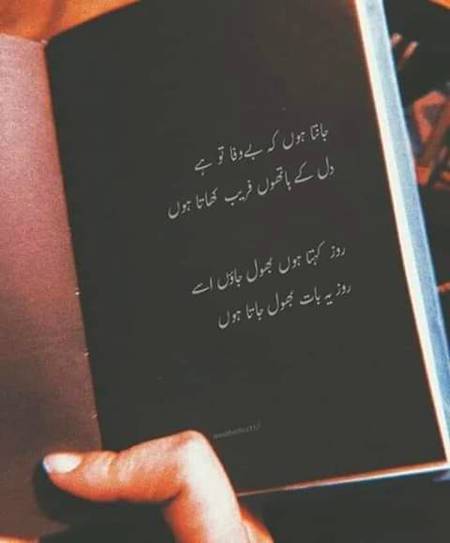 جانتا ہوں کہ بےوفا تو ہے
دل کے ہاتھوں فریب کھاتا ہوں
روز کہتا ہوں بھول جاؤں اسے
روز یہ بات بھول جاتا ہوں